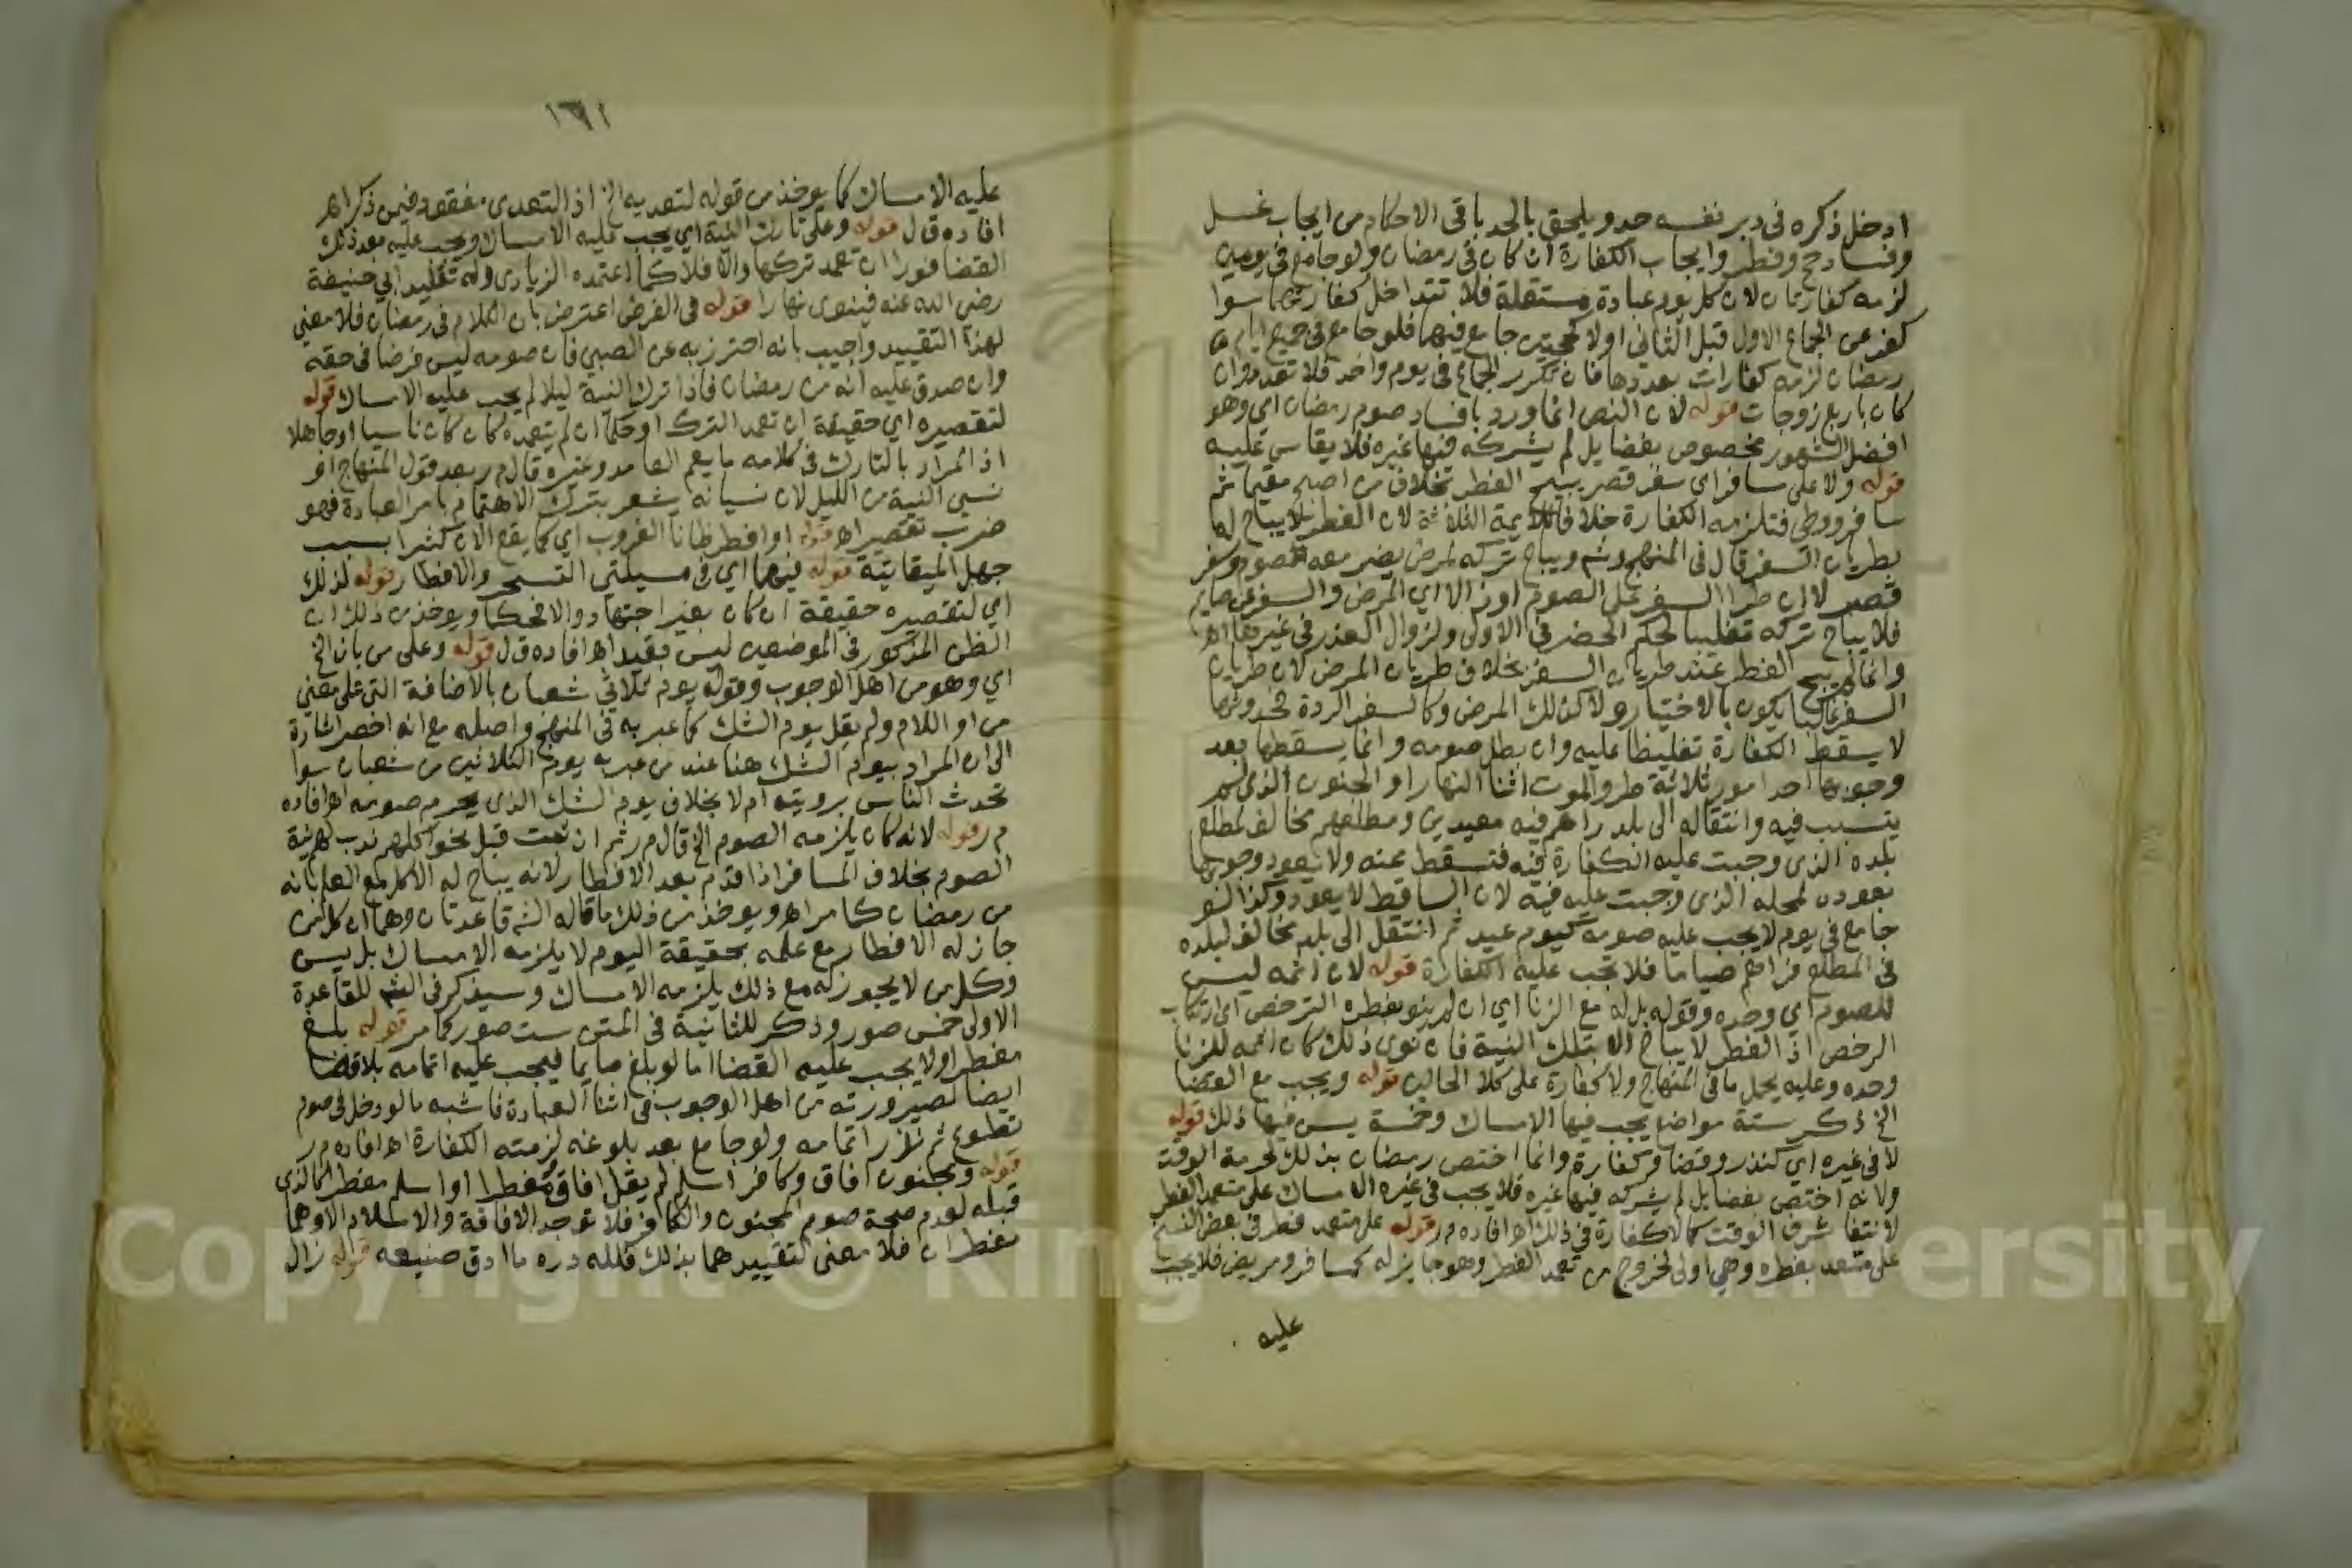 ادخل ذكره في دبر نفسه حد ويلحق بالحد باقي الاحكام من ايجاب غسل
وفساد حج وفطر وايجاب الكفارة ان كان في رمضان ولو جامع في يومين
لزمه كفارتان لان كل يوم عبادة مستقلة فلا تتداخل كفارتهما سوا
كفر عن الجماع الاول قبل الثاني اولا كحجتين جامع فيهما فلو جامع في جميع ايام
رمضان لزمه كفارات بعددها فان تكرر الجماع في يوم واحد فلا تعدد وان
كان باربع زوجات قوله لان النص انما ورد بافساد صوم رمضان اي وهو
افضل الشهور مخصوص بفضايل لم يشركه فيها غيره فلا يقاس عليه
قوله ولا على مسافر اي سفر قصر يبيح الفطر بخلاف من اصبح مقيما ثم
سافر ووطي فتلزمه الكفارة خلافا للايمة الثلاثة لان الفطر لا يباح له
بطريان السفر قال في المنهج وشم ويباح تركه لمرض يضر معه الصوم وسفر
قصر لا ان طرا السفر على الصوم او زالا اي المرض والسفر عن صايم
فلا يباح تركه تغليبا لحكم الحضر في الاولى ولزوال العذر في غيرها اهـ
وانما لم يبح الفطر عند طريان السفر بخلاف طريان المرض لان طريان
السفر غالبا يكون بالاختيار ولا كذلك المرض وكالسفر الردة فحدوثها
لا يسقط الكفارة تغليظا عليه وان بطل صومه وانما يسقطها بعد
وجوبها احد امور ثلاثة طرو الموت اثنا النهار او الجنون الذي لم
يتسبب فيه وانتقاله الى بلد راهم فيه معيدين ومطلعهم مخالف لمطلع
بلده الذي وجبت عليه الكفارة فيه فتسقط عنه ولا يعود وجوبها
بعوده لمحله الذي وجبت عليه فيه لان الساقط لا يعود وكذا لو
جامع في يوم لا يجب عليه صومه كيوم عيد ثم انتقل الى بلد مخالف لبلده
في المطلع فراهم صياما فلا تجب عليه الكفارة قوله لان اثمه ليس
للصوم اي وحده وقوله بل له مع الزنا اي ان لم ينو بفطره الترخص اي ارتكاب
الرخص اذ الفطر لا يباح الا بتلك النية فان نوى ذلك كان اثمه للزنا
وحده وعليه يحمل ما في المنهاج ولا كفارة على كلا الحالين قوله ويجب مع القضا
الخ ذكر ستة مواضع يجب فيها الامساك وخمسة يسن فيها ذلك قوله
لا في غيره اي كنذر وقضا وكفارة وانما اختص رمضان بذلك لحرمة الوقت
ولانه اختص بفضايل لم يشركه فيها غيره فلا يجب في غيره الامساك على متعمد الفطر
لانتفا شرف الوقت كما لا كفارة في ذلك اهـ افاده م ر قوله على متعمد فطر في بعض النسخ
على متعمد بفطره وهي اولى لخروج من تعمد الفطر وهو جايز له كمسافر ومريض فلا يجب
عليه
١٦١
عليه الامساك كما يوخذ من قوله لتعديه الخ اذ التعدي مفقود فيمن ذكر اهـ
افاده ق ل قوله وعلى تارك النية اي يجب عليه الامساك ويجب عليه بعد ذلك
القضا فورا ان تعمد تركها والا فلا كما اعتمده الزيادي وله تقليد ابي حنيفة
رضي الله عنه فينوي نهارا قوله في الفرض اعترض بان الكلام في رمضان فلا معنى
لهذا التقييد واجيب بانه احترز به عن الصبي فان صومه ليس فرضا في حقه
وان صدق عليه انه من رمضان فاذا ترك النية ليلا لم يجب عليه الامساك قوله
لتقصيره اي حقيقة ان تعمد الترك او حكما ان لم يتعمده كان كان ناسيا او جاهلا
اذ المراد بالتارك في كلامه ما يعم العامد وغيره قال م ر بعد قول المنهاج او
نسي النية من الليل لان نسيانه يشعر بترك الاهتمام بامر العبادة فهو
ضرب تقصير اهـ قوله او افطر ظانا الغروب اي كما يقع الان كثيرا بسبب
جهل الميقاتية قوله فيهما اي في مسيلتي التسحر والافطار قوله لذلك
اي لتقصيره حقيقة ان كان بغير اجتهاد والا فحكما ويوخذ من ذلك ان
الظن المذكور في الموضعين ليس بقيد اهـ افاده ق ل قوله وعلى من بان الخ
اي وهو من اهل الوجوب وقوله يوم ثلاثي شعبان بالاضافة التي على معنى
من او اللام ولم يقل يوم الشك كما عبر به في المنهج واصله مع انه اخصر اشارة
الى ان المراد بيوم الشك هنا عند من عبر به يوم الثلاثين من شعبان سوا
تحدث الناس برويته ام لا بخلاف يوم الشك الذي يحرم صومه اهـ افاده
م ر قوله لانه كان يلزمه الصوم الخ قال م ر ثم ان ثبت قبل نحو اكلهم ندب لهم نية
الصوم بخلاف المسافر اذا قدم بعد الافطار لانه يباح له الاكل مع العلم بانه
من رمضان كما مر اهـ ويوخذ من ذلك ما قاله الش قاعدتان وهما ان كل من
جاز له الافطار مع علمه بحقيقة اليوم لا يلزمه الامساك بل يسن
وكل من لا يجوز له مع ذلك يلزمه الامساك وسيذكر في الش للقاعدة
الاولى خمس صور وذكر للثانية في المتن ست صور كما مر قوله بلغ
مفطرا ولا يجب عليه القضا اما لو بلغ صايما فيجب عليه اتمامه بلا قضا
ايضا لصيرورته من اهل الوجوب في اثنا العبادة فاشبه ما لو دخل في صوم
تطوع ثم نذر اتمامه ولو جامع بعد بلوغه لزمته الكفارة اهـ افاده م ر
قوله ومجنون افاق وكافر اسلم لم يقل افاق مفطرا او اسلم مفطرا كالذي
قبله لعدم صحة صوم المجنون والكافر فلا توجد الافاقة والاسلام الا وهما
مفطران فلا معنى لتقييدهما بذلك فلله دره ما ادق صنيعه قوله زال
Copyright © King Saud University